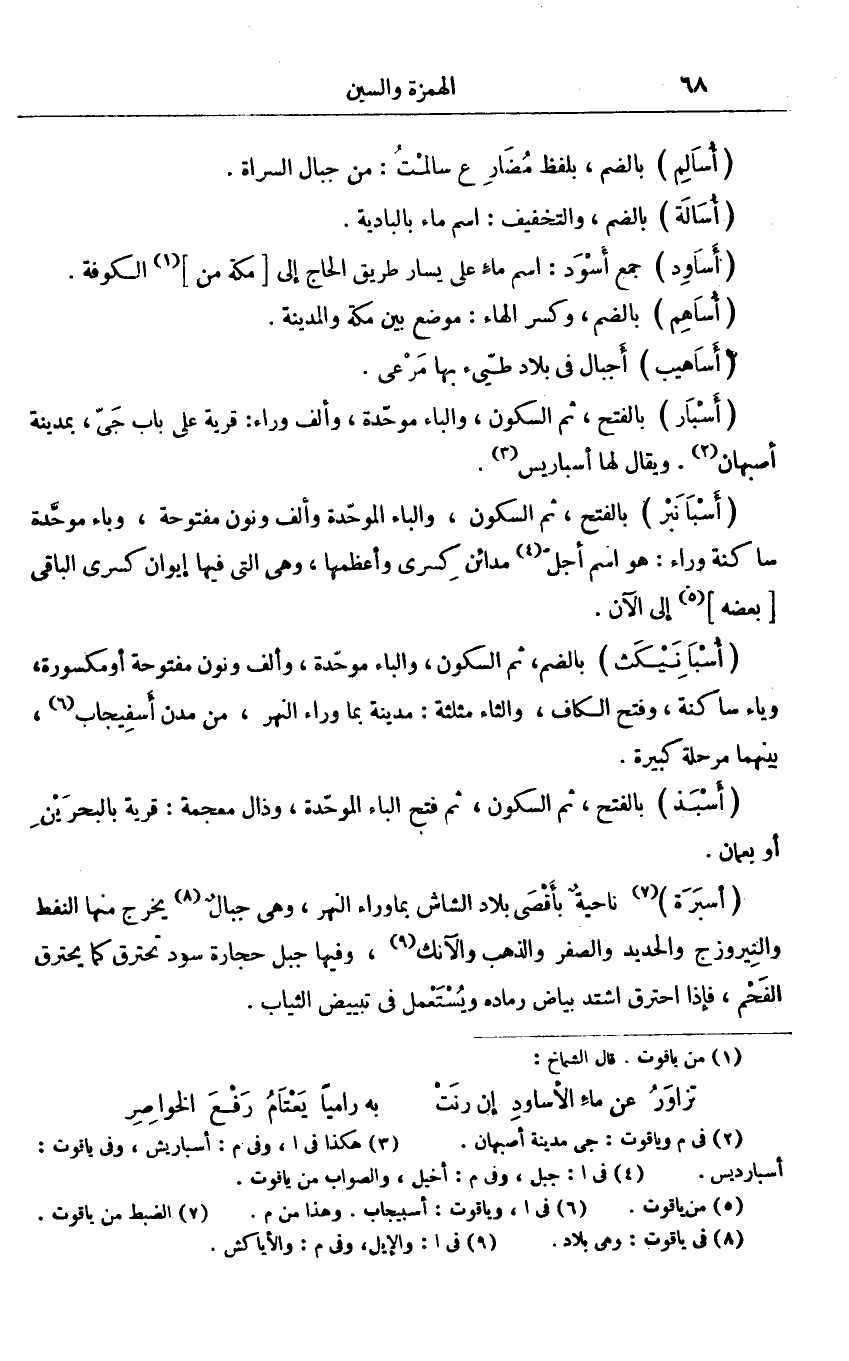 ٦٨ الهمزة والسين
( أُسَالِم ) بالضم ، بلفظ مُضَارِع سالمْتُ : من جبال السراة .
( أُسَالَة ) بالضم ، والتخفيف : اسم ماء بالبادية .
( أَسَاوِد ) جمع أَسْوَد : اسم ماءً على يسار طريق الحاج إلى [ مكة من ](١) الكوفة .
( أُسَاهِم ) بالضم ، وكسر الهاء : موضع بين مكة والمدينة .
( أَسَاهيب ) أَجبال فى بلاد طيّىء بها مَرْعى .
( أَسْبَار ) بالفتح ، ثم السكون ، والباء موحّدة ، وألف وراء: قرية على باب جَىّ ، بمدينة
أصبهان(٢) . ويقال لها أسباريس(٣) .
( أَسْبَانَبْر ) بالفتح ، ثم السكون ، والباء الموحّدة وألف ونون مفتوحة ، وباء موحَّدة
ساكنة وراء : هو اسم أجلّ(٤) مدائن كِسرى وأعظمها ، وهى التى فيها إيوان كسرى الباقى
[ بعضه ](٥) إلى الآن .
( أُسْبَانِيَكَث ) بالضم، ثم السكون ، والباء موحّدة ، وألف ونون مفتوحة أومكسورة،
وياء ساكنة ، وفتح الكاف ، والثاء مثلثة : مدينة بما وراء النهر ، من مدن أَسفِيجاب(٦) ،
بينهما مرحلة كبيرة .
( أَسْبَذ ) بالفتح ، ثم السكون ، ثم فتح الباء الموحّدة ، وذال معجمة : قرية بالبحرَيْنِ
أو بعمان .
( أسبَرَة )(٧) ناحيةٌ بأَقْصَى بلاد الشاش بماوراء النهر ، وهى جبالٌ(٨) يخرج منها النفط
والنِيروزج والحديد والصفر والذهب والآنك(٩) ، وفيها جبل حجارة سود تحترق كما يحترق
الفَحْم ، فإذا احترق اشتد بياض رماده ويُسْتَعْمل فى تبييض الثياب .
(١) من ياقوت . قال الشماخ :
تزاوَرُ عن ماء الأساودِ إن رنَتْ به رامياً يَعْتَامُ رَفْعَ الخواصِرِ
(٢) فى م وياقوت : جى مدينة أصبهان . (٣) هكذا فى ا ، وفى م : أسباريش ، وفى ياقوت :
أسبارديس . (٤) فى ا : جبل ، وفى م : أخيل ، والصواب من ياقوت .
(٥) من ياقوت . (٦) فى ا ، وياقوت : أسبيجاب . وهذا من م . (٧) الضبط من ياقوت .
(٨) فى ياقوت : وهى بلاد . (٩) فى ا : والإيل، وفى م : والأياكش .